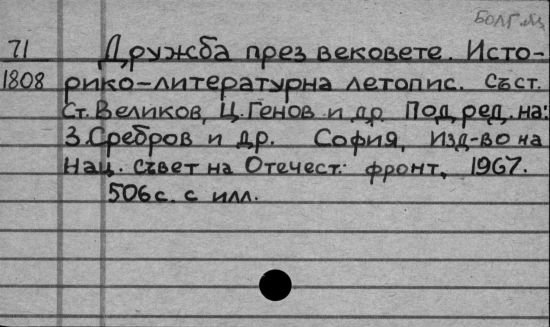 Болг. яз
71 Дружба през вековете. Исто-
1808 рико-литературна летопис. Съст.
Ст. Великов, Ц. Генов и др. Под ред. на:
З. Сребров и др. София, Изд-во на
Нац. съвет на Отечест. фронт, 1967.
506 с. с илл.